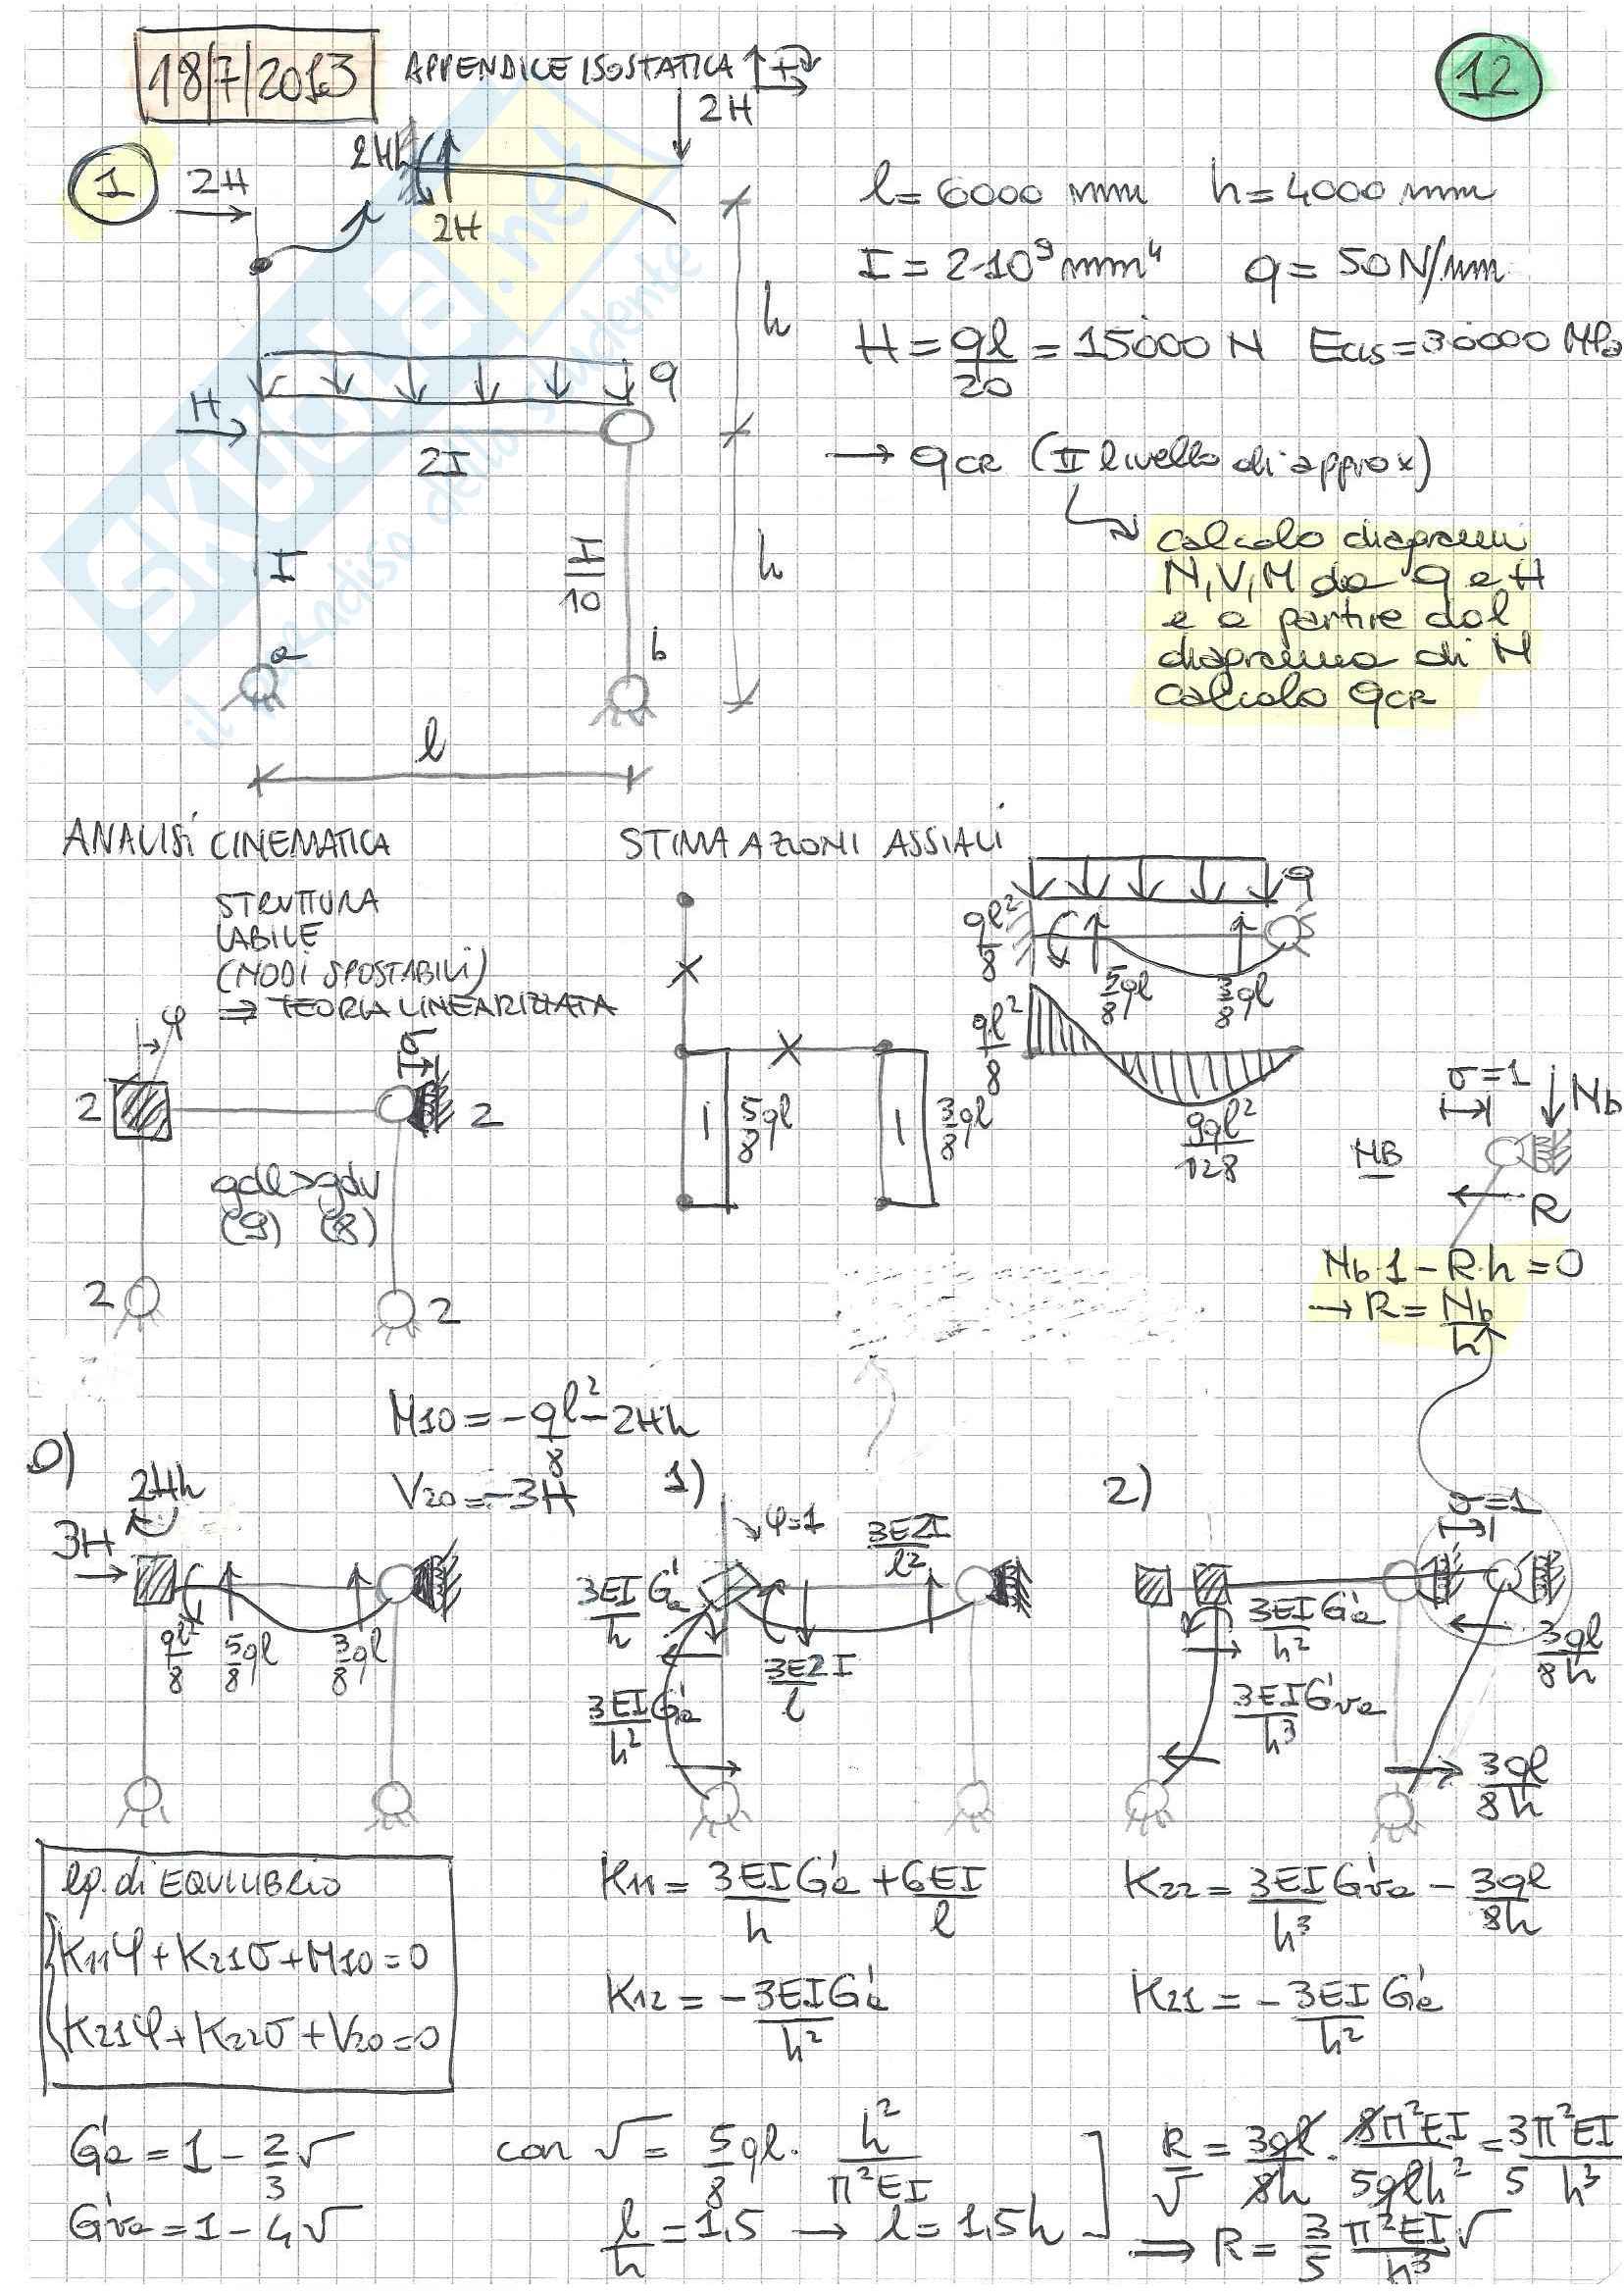 18/7/2013
APPENDICE ISOSTATICA +
12
2H
2Hh
2H
1
2H
l = 6000 mm h = 4000 mm
I = 2·10⁹ mm⁴ q = 50 N/mm
H = ql/20 = 15000 N Ecls = 30000 MPa
h
q
H
2I
→ qcr (II livello di approx)
calcolo diagrammi
N, V, M da q e H
e a partire dal
diagramma di M
calcolo qcr
I
I/10
h
a
b
l
SKUOLA.net
il paradiso dello studente
ANALISI CINEMATICA
STIMA AZIONI ASSIALI
STRUTTURA
LABILE
(NODI SPOSTABILI)
⇒ TEORIA LINEARIZZATA
φ
σ
2
2
gdl > gdv
(9) (8)
2
2
5/8 ql
3/8 ql
q
ql²/8
5/8 ql
3/8 ql
ql²/8
9ql²/128
σ=1
Nb
MB
R
Nb·1 - R·h = 0
→ R = Nb/h
0)
M10 = -ql²/8 - 2Hh
V20 = -3H
2Hh
3H
ql²/8
5/8 ql
3/8 ql
1)
φ=1
3E2I/l²
3EI/h G'a
3E2I/l
3EI/h² G'a
2)
σ=1
3EI/h² G'a
3EI/h³ G'va
3ql/8h
3ql/8h
Eq. di EQUILIBRIO
K11φ + K21σ + M10 = 0
K21φ + K22σ + V20 = 0
K11 = 3EI/h G'a + 6EI/l
K12 = -3EI/h² G'a
K22 = 3EI/h³ G'va - 3ql/8h
K21 = -3EI/h² G'a
G'a = 1 - 2/3 √
G'va = 1 - 4√
con √ = 5/8 ql · h²/π²EI
l/h = 1,5 → l = 1,5h
R/√ = 3ql/8h · 8π²EI/5qlh² = 3/5 π²EI/h³
⇒ R = 3/5 π²EI/h³ √